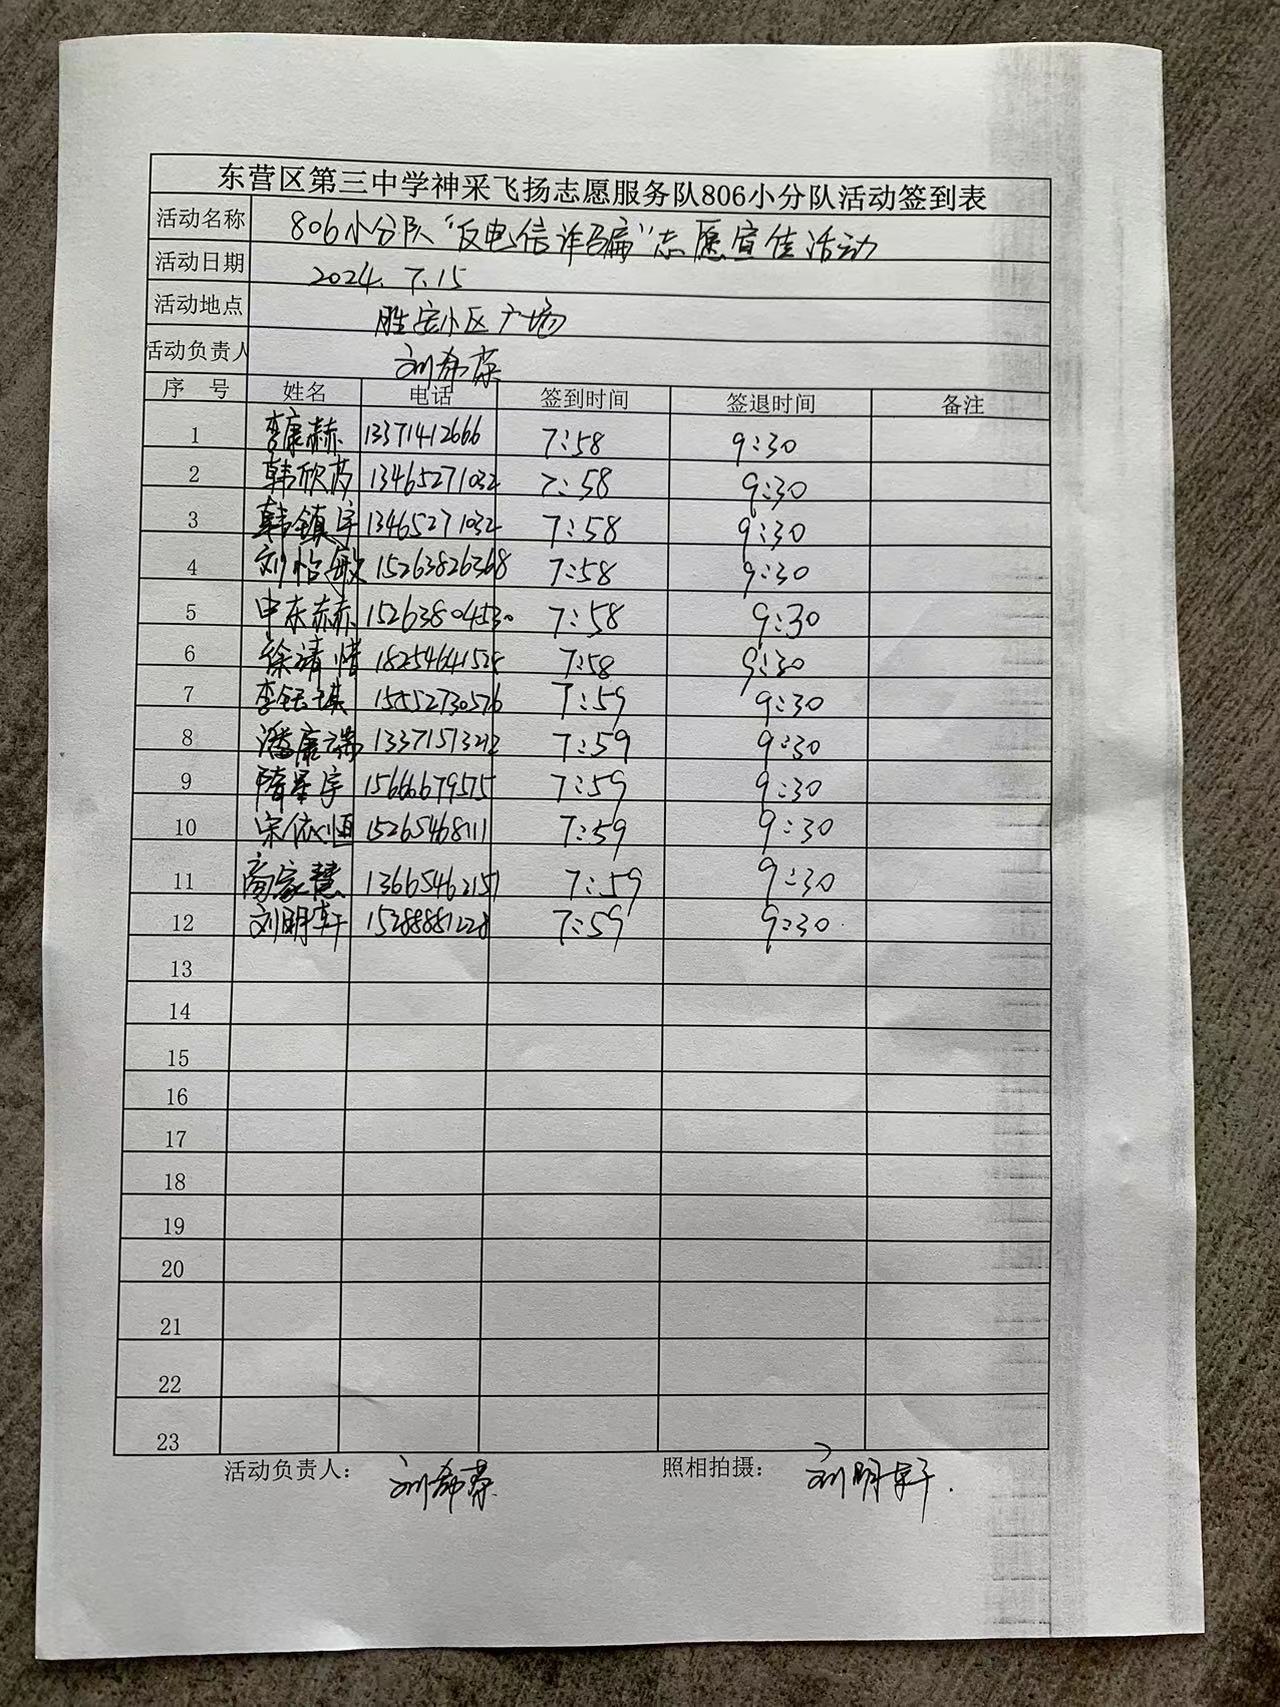 东营区第三中学神采飞扬志愿服务队806小分队活动签到表
活动名称 806小分队“反电信诈骗”志愿宣传活动
活动日期 2024.7.15
活动地点 胜宏小区广场
活动负责人 刘希荣
序 号 姓名 电话 签到时间 签退时间 备注
1 李康赫 13371412666 7:58 9:30
2 韩欣芮 13465271032 7:58 9:30
3 韩镇宇 13465271032 7:58 9:30
4 刘怡敏 15263826368 7:58 9:30
5 申东赫 15263804530 7:58 9:30
6 徐清惜 18254641528 7:58 9:30
7 李钰琪 15552730576 7:59 9:30
8 潘康瑞 13371513212 7:59 9:30
9 隋星宇 15666679575 7:59 9:30
10 宋依恒 15265468111 7:59 9:30
11 商家慧 13665462157 7:59 9:30
12 刘明轩 15288881228 7:59 9:30
13
14
15
16
17
18
19
20
21
22
23
活动负责人： 刘希荣 照相拍摄： 刘明轩.